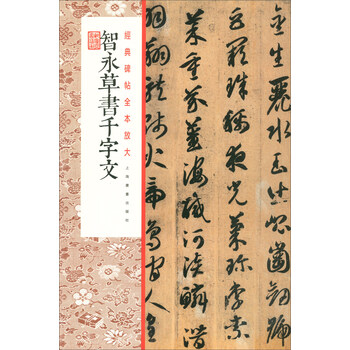 經典碑帖全本放大
智永草書千字文
上海書畫出版社
金生麗水玉出崑崗劍號
巨闕珠稱夜光菓珎李柰
菜重芥薑海醎河淡鱗潛
羽翔龍師火帝鳥官人皇